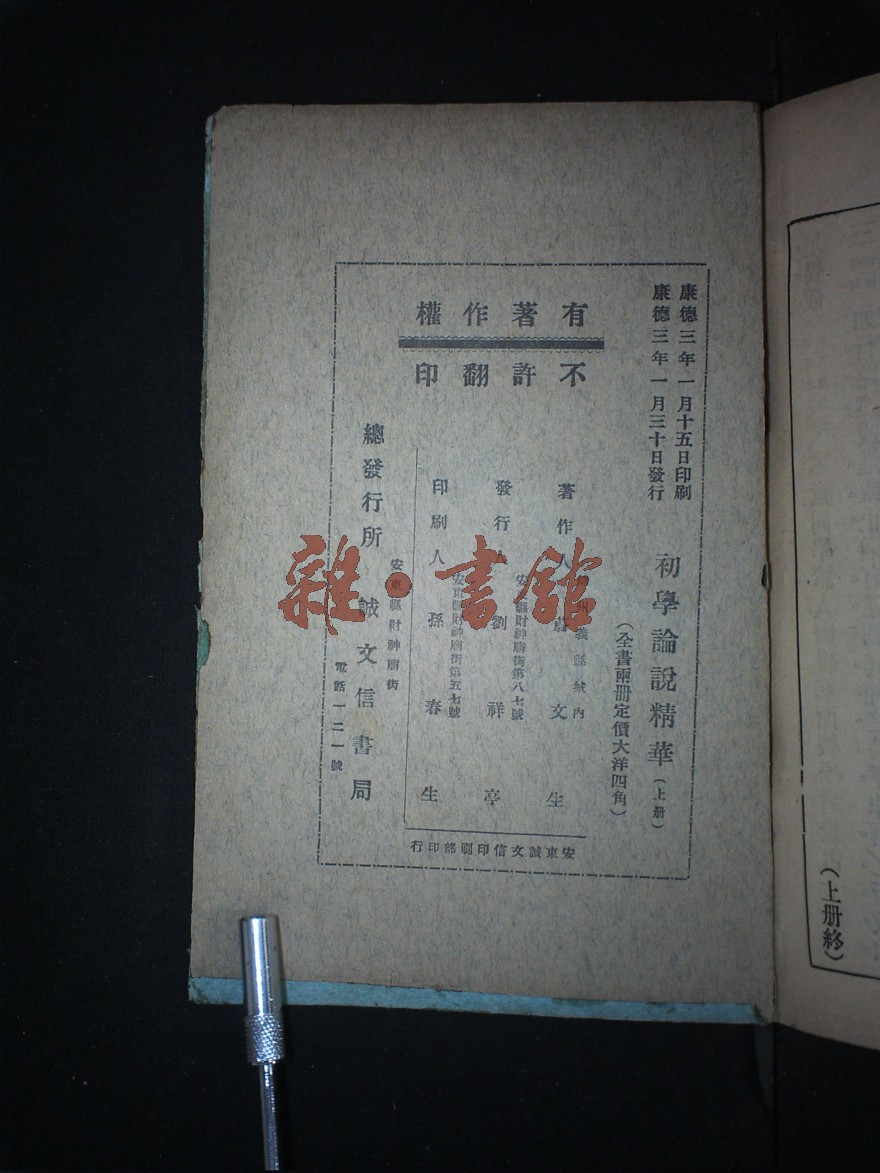 康德三年一月十五日印刷
康德三年一月三十日發行
初學論說精華(上册)
(全書兩册定價大洋四角)
有著作權
不許翻印
著作人
州義縣城內
文生
發行人
安縣財神廟街第八七號
劉祥亭
印刷人
安東縣財神廟街第五七號
孫春生
總發行所
安東縣財神廟街
誠文信書局
電話一二一號
安東誠文信印刷部印行
(上册終)
雜·書館